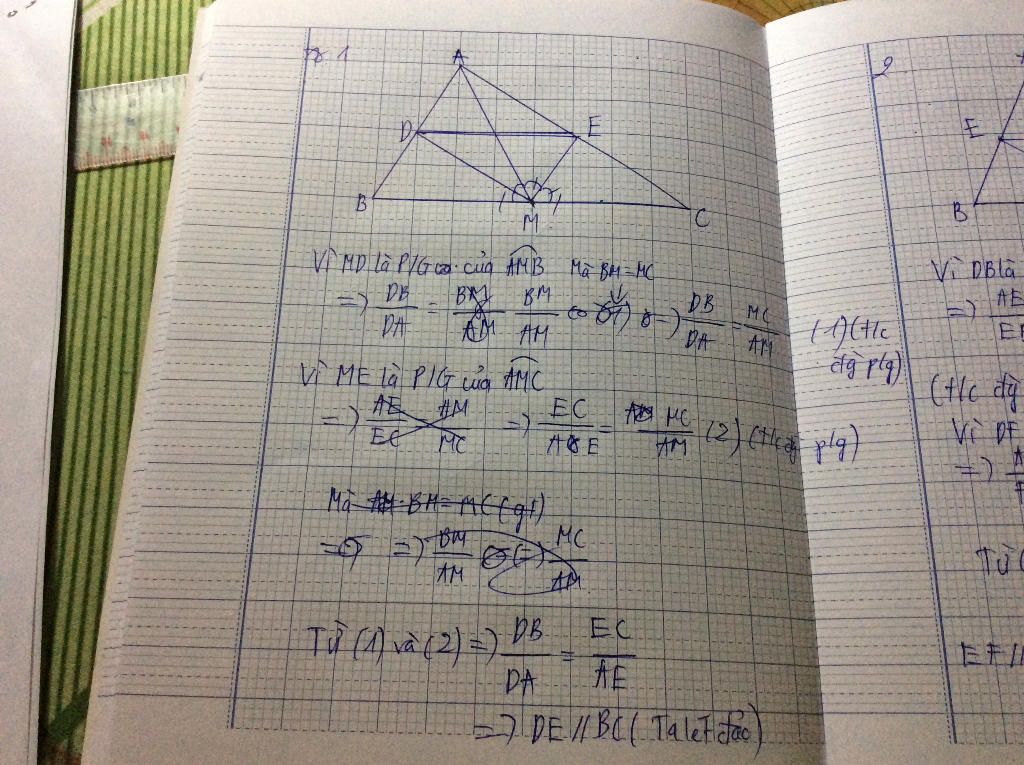 1
A
D E
B M C
Vì MD là P/G của AMB Mà BM = MC
=> DB/DA = BM/AM => DB/DA = MC/AM (1) (t/c
đg p/g)
Vì ME là P/G của AMC
=> EC/AE = MC/AM (2) (t/c đg p/g)
Mà BM = MC (gt)
=> BM/AM MC/AM
Từ (1) và (2) => DB/DA = EC/AE
=> DE // BC ( Talet đảo)
2
E
B
Vì DB là
=> AE
(t/c đg
Vì DE
=>
Từ (
EF //